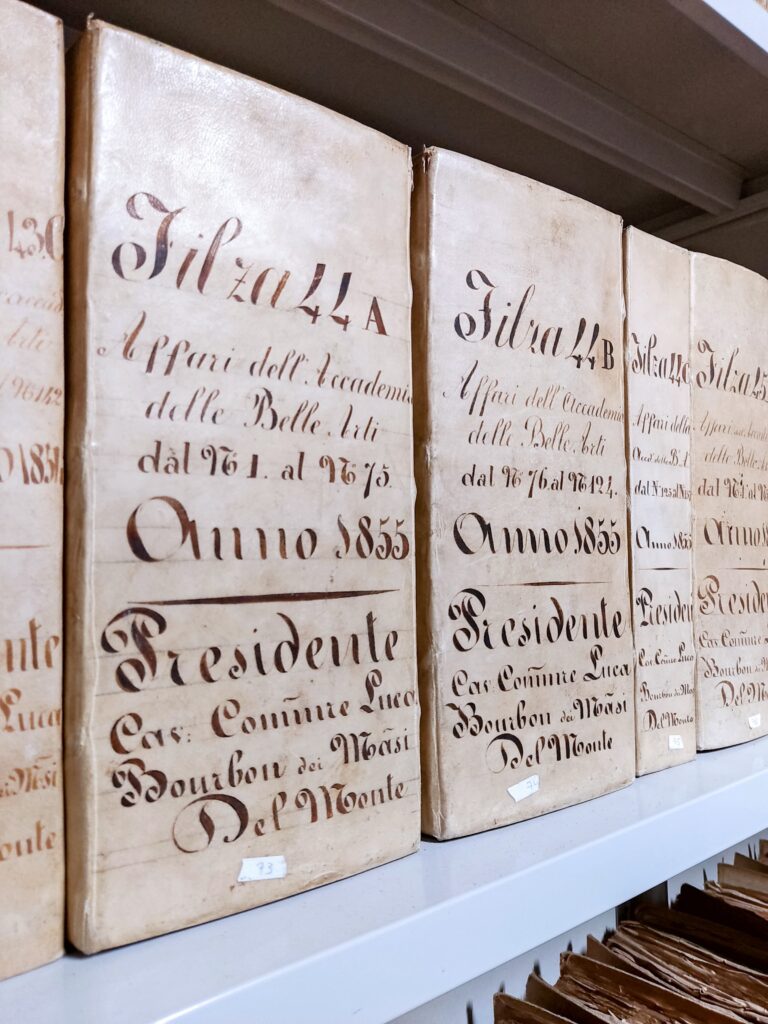 43.C
1854
Luca
Filza 44 A
Affari dell'Accademia
delle Belle Arti
dal Nº 1. al Nº 75.
Anno 1855
Presidente
Cav: Com̃mre Luca
Bourbon dei Mãsi
Del Monte
73
Filza 44 B
Affari dell'Accademia
delle Belle Arti
dal Nº 76. al Nº 124.
Anno 1855
Presidente
Cav. Com̃mre Luca
Bourbon dei Mãsi
Del Monte
74
Filza 44C
Affari della
Accad. delle B. A.
Anno 1855
Presiden
Cav. Com̃re Luca
Bourbon
Del Monte
Filza 45
Affari
delle Belle
Anno 18
Presiden
Cav. Com̃mre
Bourbon
Del Mo